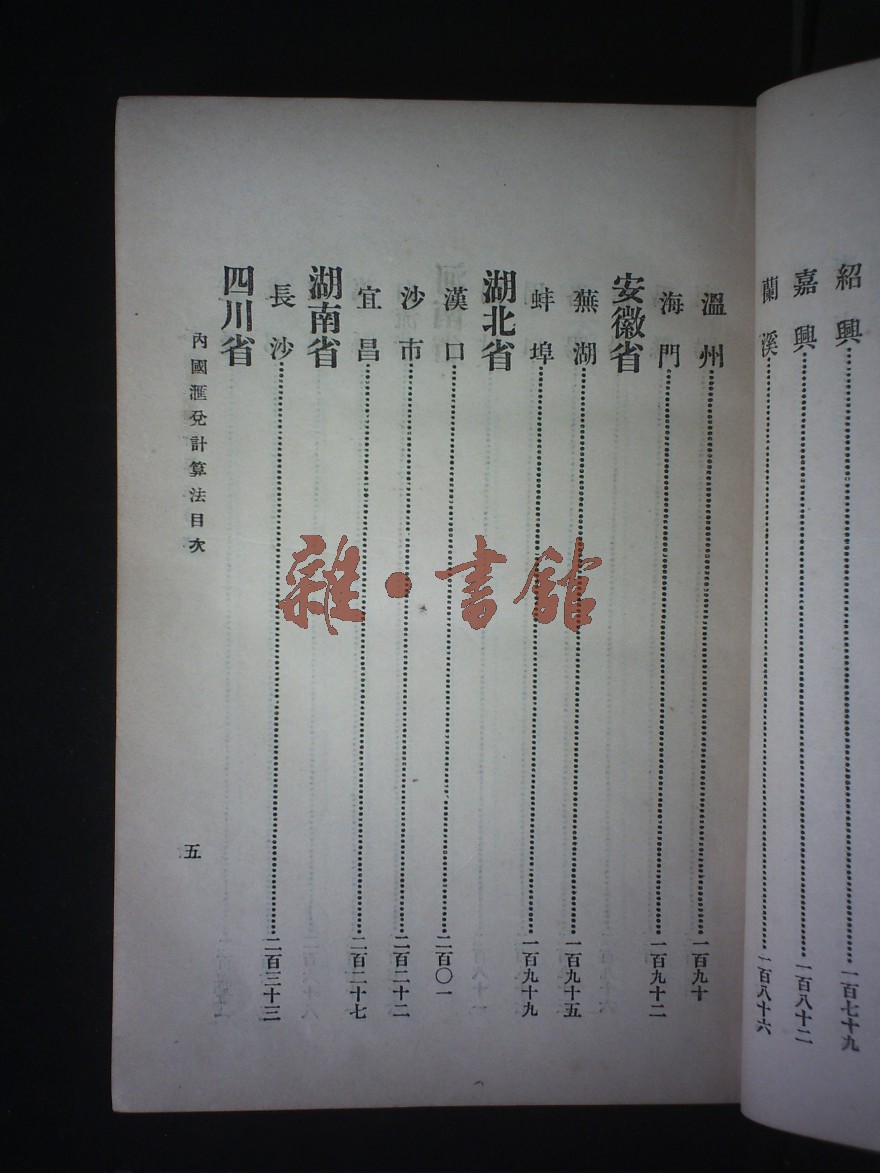 紹興……一百七十九
嘉興……一百八十二
蘭溪……一百八十六
溫州……一百九十
海門……一百九十二
安徽省
蕪湖……一百九十五
蚌埠……一百九十九
湖北省
漢口……二百〇一
沙市……二百二十二
宜昌……二百二十七
湖南省
長沙……二百三十三
四川省
內國滙兌計算法目次
五
雜·書館